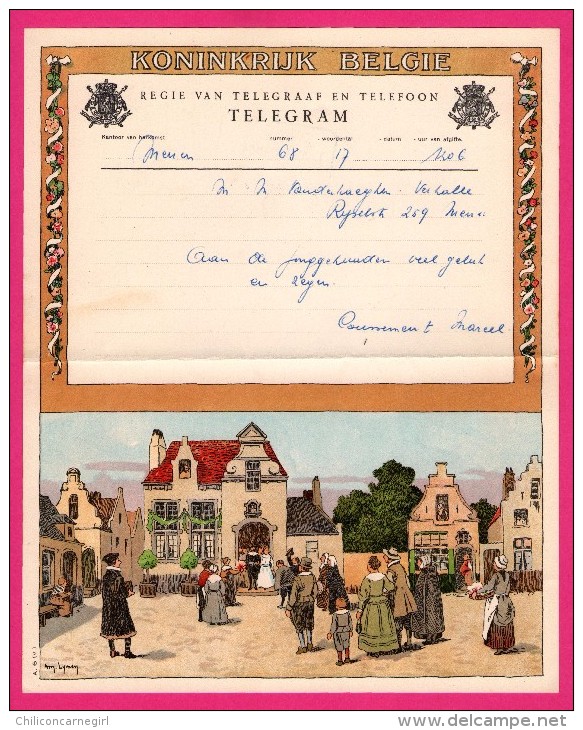 KONINKRIJK BELGIE
REGIE VAN TELEGRAAF EN TELEFOON
TELEGRAM
Kantoor van herkomst nummer - woordental - datum - uur van afgifte.
Menen 68 17 1206
Mr M Vanderhaeghen - Verhalle
Rijselstr 259 Menen
Aan de jonggehuwden veel geluk
en zegen.
Coussement Marcel
A. 6 (V.)
Am. Lynen
Chiliconcarnegirl
www.delcampe.net